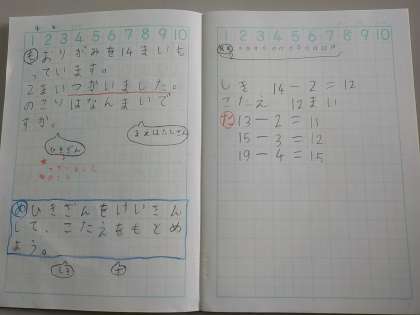 1 2 3 4 5 6 7 8 9 10
も おりがみを14まいも
っています。
2まいつかいました。
のこりはなんまいで
すか。
ひきざん
め ひきざんをけいさん
して、こたえをもとめ
よう。
1 2 3 4 5 6 7 8 9 10
しき 14-2=12
こたえ 12まい
た 13-2=11
15-3=12
19-4=15